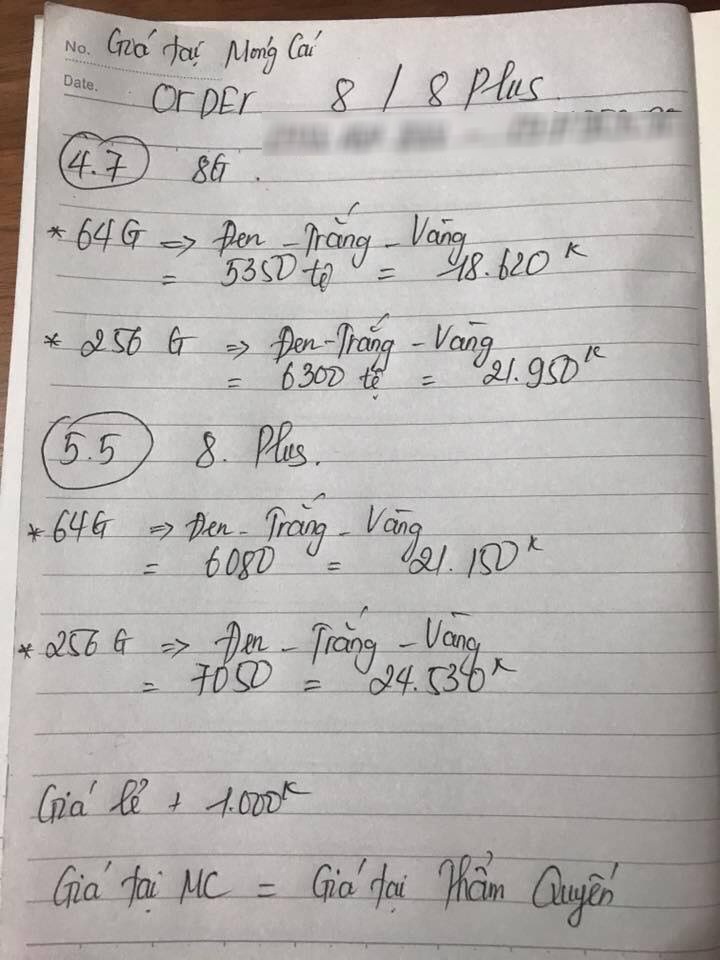 No. Giá tại Móng Cái
Date.
OrDEr 8 / 8 Plus
4.7 8G.
* 64G => Đen - Trắng - Vàng
= 5350 tệ = 18.620K
* 256 G => Đen - Trắng - Vàng
= 6300 tệ = 21.950K
5.5 8. Plus.
* 64G => Đen - Trắng - Vàng
= 6080 = 21.150K
* 256 G => Đen - Trắng - Vàng
= 7050 = 24.530K
Giá lẻ + 1.000K
Giá tại MC = Giá tại Thẩm Quyến